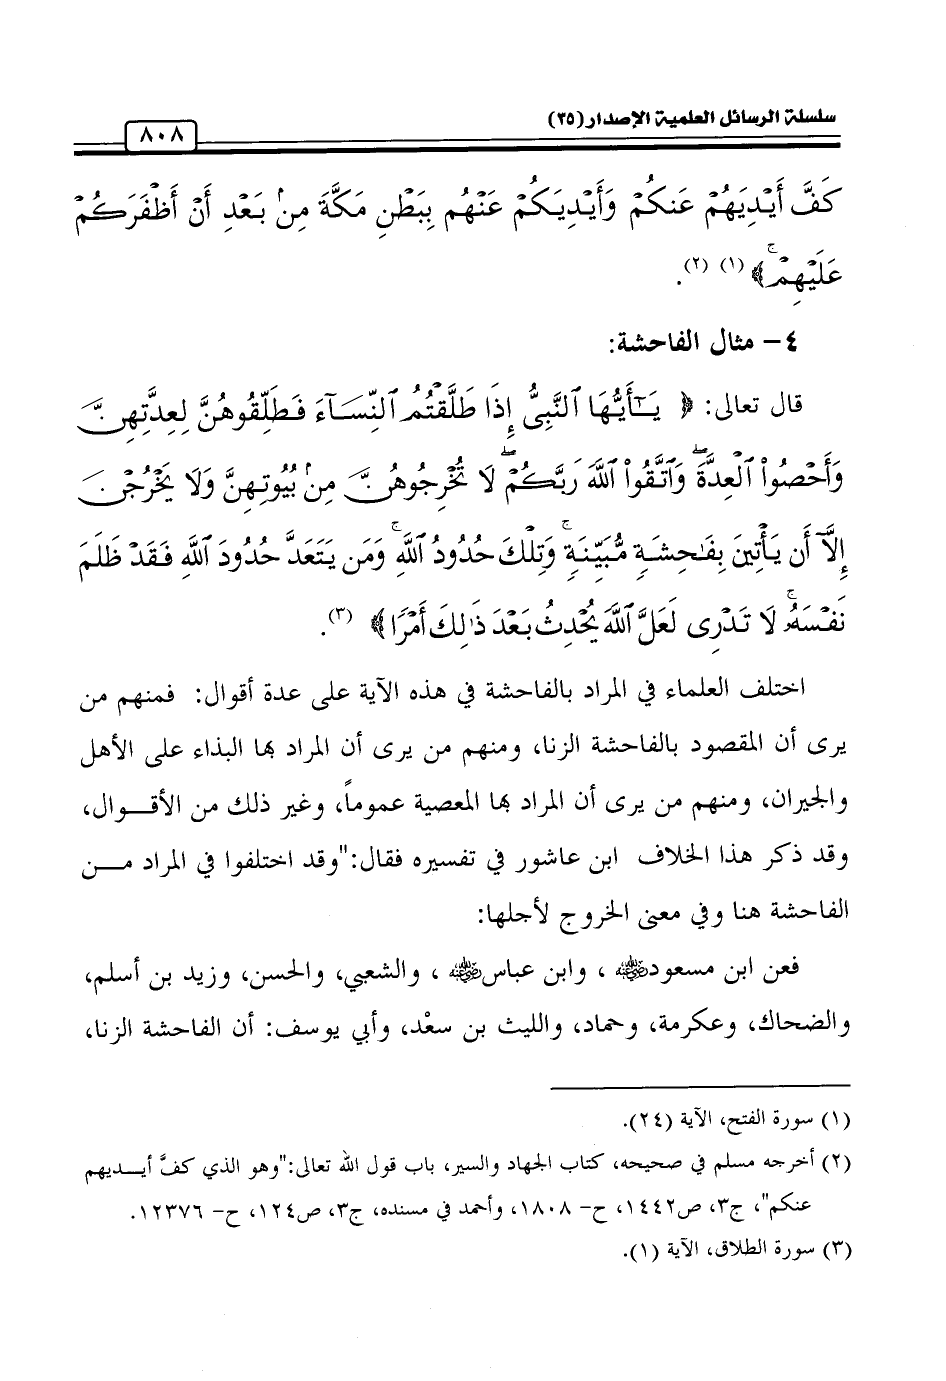 سلسلة الرسائل العلمية الإصدار (٢٥)
٨٠٨
كَفَّ أَيْدِيَهُمْ عَنكُمْ وَأَيْدِيَكُمْ عَنْهُم بِبَطْنِ مَكَّةَ مِنۢ بَعْدِ أَنْ أَظْفَرَكُمْ
عَلَيْهِمْ ۚ ﴾ (١) (٢).
٤ – مثال الفاحشة:
قال تعالى: ﴿ يَـٰٓأَيُّهَا ٱلنَّبِىُّ إِذَا طَلَّقْتُمُ ٱلنِّسَآءَ فَطَلِّقُوهُنَّ لِعِدَّتِهِنَّ
وَأَحْصُوا۟ ٱلْعِدَّةَ ۖ وَٱتَّقُوا۟ ٱللَّهَ رَبَّكُمْ ۖ لَا تُخْرِجُوهُنَّ مِنۢ بُيُوتِهِنَّ وَلَا يَخْرُجْنَ
إِلَّآ أَن يَأْتِينَ بِفَـٰحِشَةٍ مُّبَيِّنَةٍ ۚ وَتِلْكَ حُدُودُ ٱللَّهِ ۚ وَمَن يَتَعَدَّ حُدُودَ ٱللَّهِ فَقَدْ ظَلَمَ
نَفْسَهُۥ ۚ لَا تَدْرِى لَعَلَّ ٱللَّهَ يُحْدِثُ بَعْدَ ذَٰلِكَ أَمْرًا ﴾ (٣).
اختلف العلماء في المراد بالفاحشة في هذه الآية على عدة أقوال: فمنهم من
يرى أن المقصود بالفاحشة الزنا، ومنهم من يرى أن المراد بها البذاء على الأهل
والجيران، ومنهم من يرى أن المراد بها المعصية عموماً، وغير ذلك من الأقوال،
وقد ذكر هذا الخلاف ابن عاشور في تفسيره فقال:"وقد اختلفوا في المراد من
الفاحشة هنا وفي معنى الخروج لأجلها:
فعن ابن مسعود رضي الله عنه، وابن عباس رضي الله عنه، والشعبي، والحسن، وزيد بن أسلم،
والضحاك، وعكرمة، وحماد، والليث بن سعْد، وأبي يوسف: أن الفاحشة الزنا،
(١) سورة الفتح، الآية (٢٤).
(٢) أخرجه مسلم في صحيحه، كتاب الجهاد والسير، باب قول الله تعالى:"وهو الذي كفَّ أيديهم
عنكم"، ج٣، ص١٤٤٢، ح- ١٨٠٨، وأحمد في مسنده، ج٣، ص١٢٤، ح- ١٢٣٧٦.
(٣) سورة الطلاق، الآية (١).